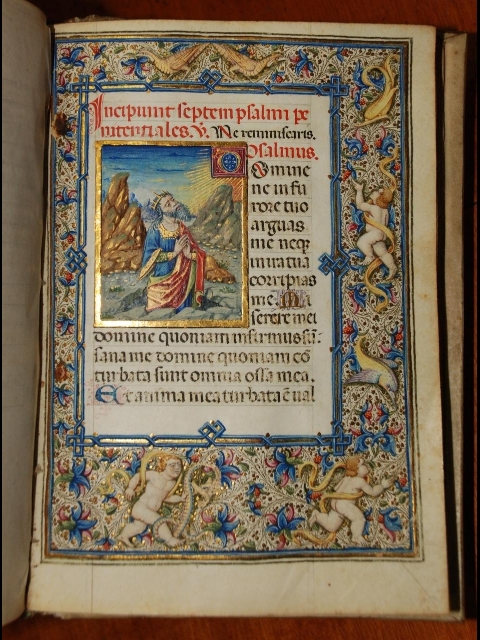 Incipiunt septem psalmi pe
nitentiales. V. Ne reminiscaris.
Psalmus.
Domine
ne in fu
rore tuo
arguas
me neq
in ira tua
corripias
me. Mi
serere mei
domine quoniam infirmus sū:
sana me domine quoniam cō
turbata sunt omnia ossa mea.
Et anima mea turbata ē ual